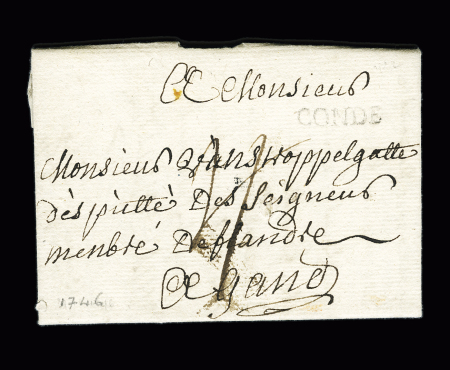 A Monsieur
CONDE
Monsieur Vanstroppelgatte
dèsputté Des Seigneur
menbré Deflandre
A Gand
1746